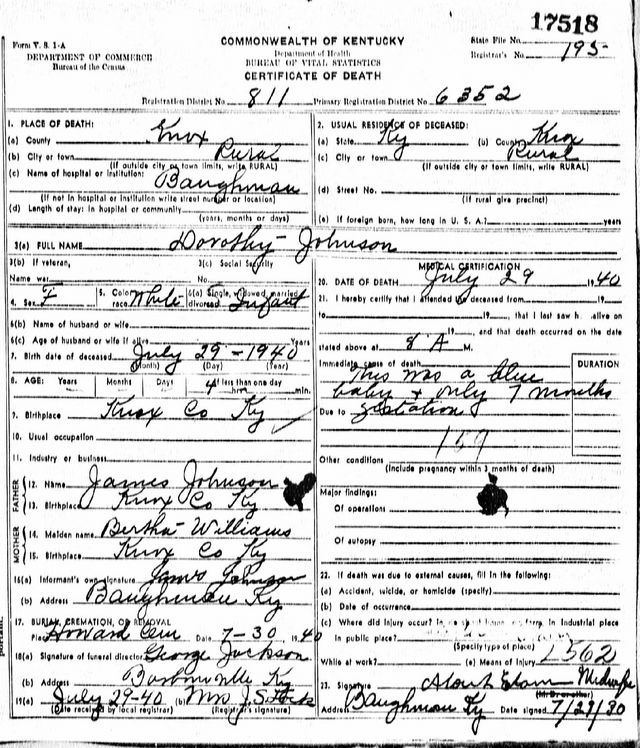 17518
Form V. S. 1-A
DEPARTMENT OF COMMERCE
Bureau of the Census
COMMONWEALTH OF KENTUCKY
Department of Health
BUREAU OF VITAL STATISTICS
CERTIFICATE OF DEATH
State File No.
Registrar's No. 195
Registration District No. 811 Primary Registration District No. 6352
1. PLACE OF DEATH:
(a) County Knox
(b) City or town Rural
(If outside city or town limits, write RURAL)
(c) Name of hospital or institution: Baughman
(If not in hospital or institution write street number or location)
(d) Length of stay: In hospital or community
(years, months or days)
2. USUAL RESIDENCE OF DECEASED:
(a) State Ky (b) County Knox
(c) City or town Rural
(If outside city or town limits, write RURAL)
(d) Street No.
(If rural give precinct)
(e) If foreign born, how long in U. S. A.? years
3(a) FULL NAME Dorothy Johnson
3(b) If veteran,
Name war
3(c) Social Security
No.
4. Sex F 5. Color or race White 6(a) Single, widowed, married, divorced Infant
6(b) Name of husband or wife
6(c) Age of husband or wife if alive Years
7. Birth date of deceased July 29 - 1940
(Month) (Day) (Year)
8. AGE: Years Months Days If less than one day
4 hrs. min.
9. Birthplace Knox Co Ky
10. Usual occupation
11. Industry or business
FATHER
12. Name James Johnson
13. Birthplace Knox Co Ky
MOTHER
14. Maiden name Bertha Williams
15. Birthplace Knox Co Ky
16(a) Informant's own signature James Johnson
(b) Address Baughman Ky
17. BURIAL, CREMATION, OR REMOVAL
Place Howard Cem Date 7-30 1940
18(a) Signature of funeral director George Jackson
(b) Address Barbourville Ky
19(a) July 29-40 (b) Mrs J. S.
(Date received by local registrar) (Registrar's signature)
MEDICAL CERTIFICATION
20. DATE OF DEATH July 29 1940
21. I hereby certify that I attended the deceased from 19
to 19 , that I last saw h alive on
19 , and that death occurred on the date
stated above at 8 A M.
Immediate cause of death
DURATION
This was a blue
baby & only 7 months
Due to gestation
159
Other conditions
(Include pregnancy within 3 months of death)
Major findings:
Of operations
Of autopsy
22. If death was due to external causes, fill in the following:
(a) Accident, suicide, or homicide (specify)
(b) Date of occurrence
(c) Where did injury occur? In or about home, on farm, in industrial place
in public place?
(Specify type of place)
While at work? (e) Means of Injury 2562
23. Signature Elam Midwife
Address Baughman Ky Date signed 7/29/30